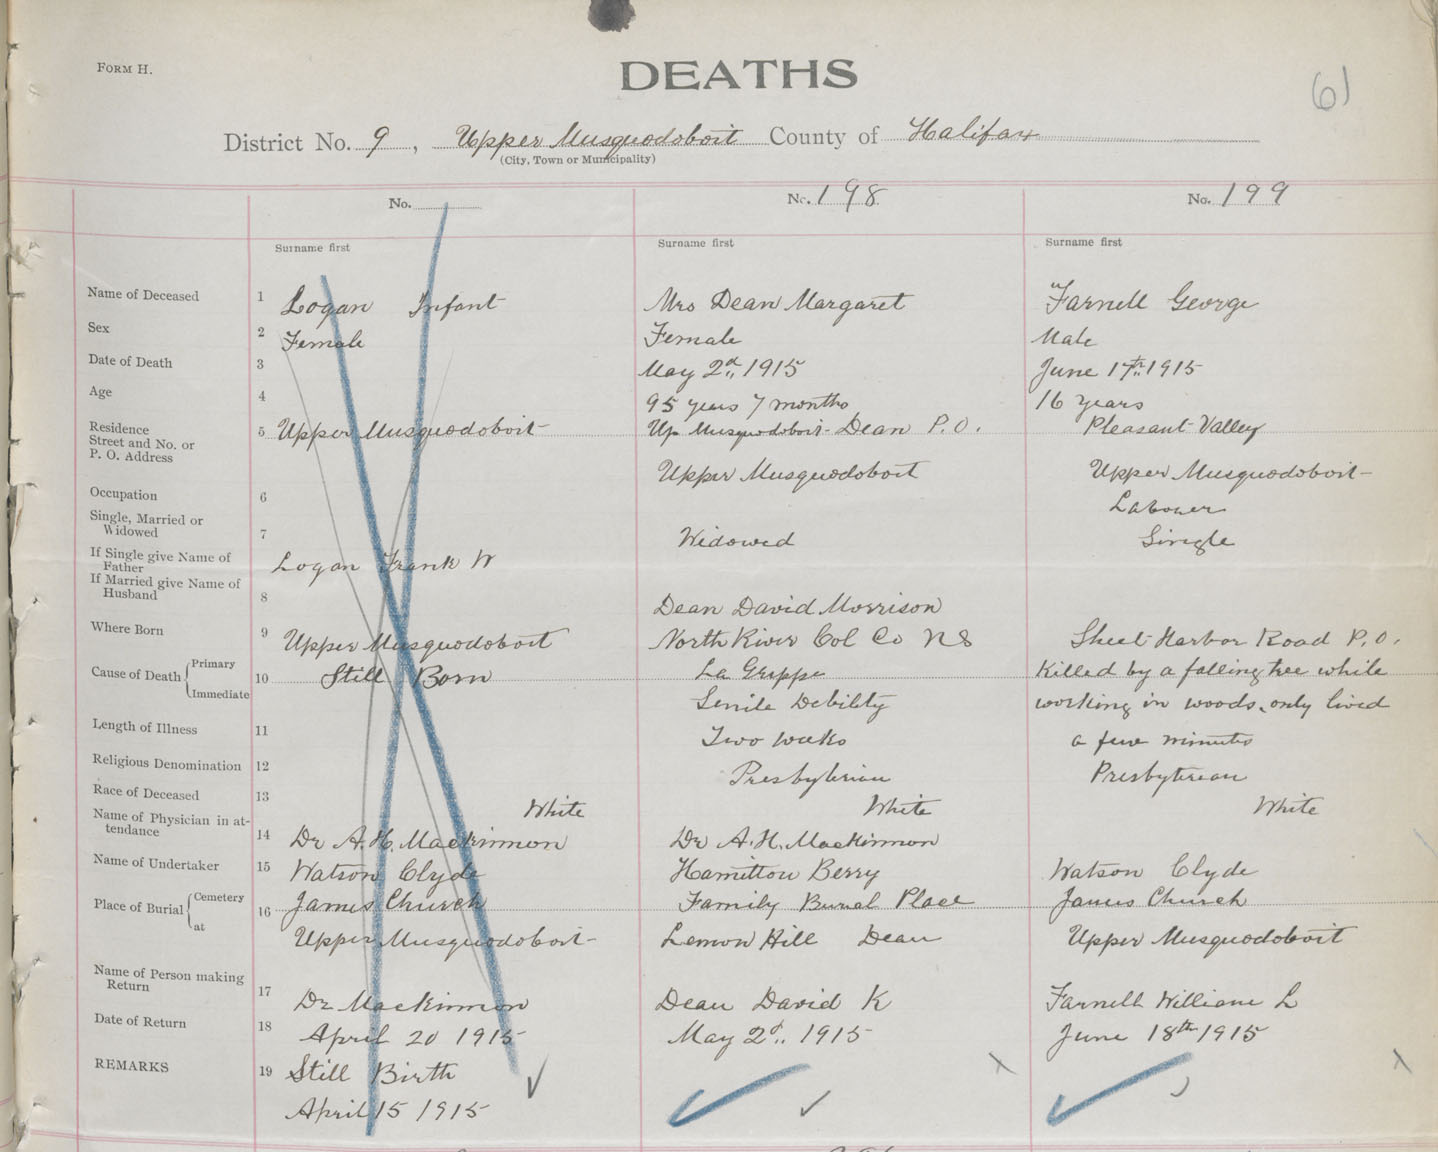 FORM H.
DEATHS
61
District No. 9, Upper Musquodoboit County of Halifax
(City, Town or Municipality)
No. No. 198 No. 199
Surname first Surname first Surname first
Name of Deceased 1 Logan Infant Mrs Dean Margaret Farnell George
Sex 2 Female Female Male
Date of Death 3 May 2d, 1915 June 17th, 1915
Age 4 95 years 7 months 16 years
Residence
Street and No. or 5 Upper Musquodoboit Up Musquodoboit - Dean P.O. Pleasant Valley
P. O. Address Upper Musquodoboit Upper Musquodoboit
Occupation 6 Labouer
Single, Married or
Widowed 7 Widowed Single
If Single give Name of
Father Logan Frank W
If Married give Name of
Husband 8 Dean David Morrison
Where Born 9 Upper Musquodoboit North River Col Co NS Sheet Harbor Road P.O.
Cause of Death Primary 10 Still Born La Grippe Killed by a falling tree while
Immediate Senile Debility working in woods, only lived
Length of Illness 11 Two weeks a few minutes
Religious Denomination 12 Presbyterian Presbyterean
Race of Deceased 13 White White White
Name of Physician in at-
tendance 14 Dr A. H. MacKinnon Dr A. H. MacKinnon
Name of Undertaker 15 Watson Clyde Hamilton Berry Watson Clyde
Place of Burial Cemetery 16 James Church Family Burial Place James Church
at Upper Musquodoboit Lemon Hill Dean Upper Musquodoboit
Name of Person making
Return 17 Dr MacKinnon Dean David K Farnell William L
Date of Return 18 April 20 1915 May 2d, 1915 June 18th 1915
REMARKS 19 Still Birth
April 15 1915